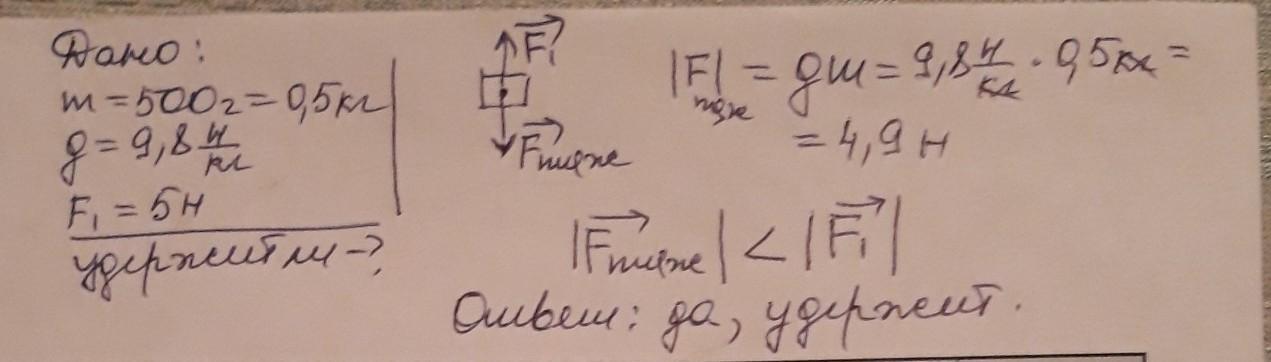 Дано:
m = 500г = 0,5кг
g = 9,8 Н/кг
F₁ = 5Н
удержит ли - ?
F₁
Fтяж
|F|тяж = gm = 9,8 Н/кг · 0,5кг =
= 4,9 Н
|Fтяж| < |F₁|
Ответ: да, удержит.